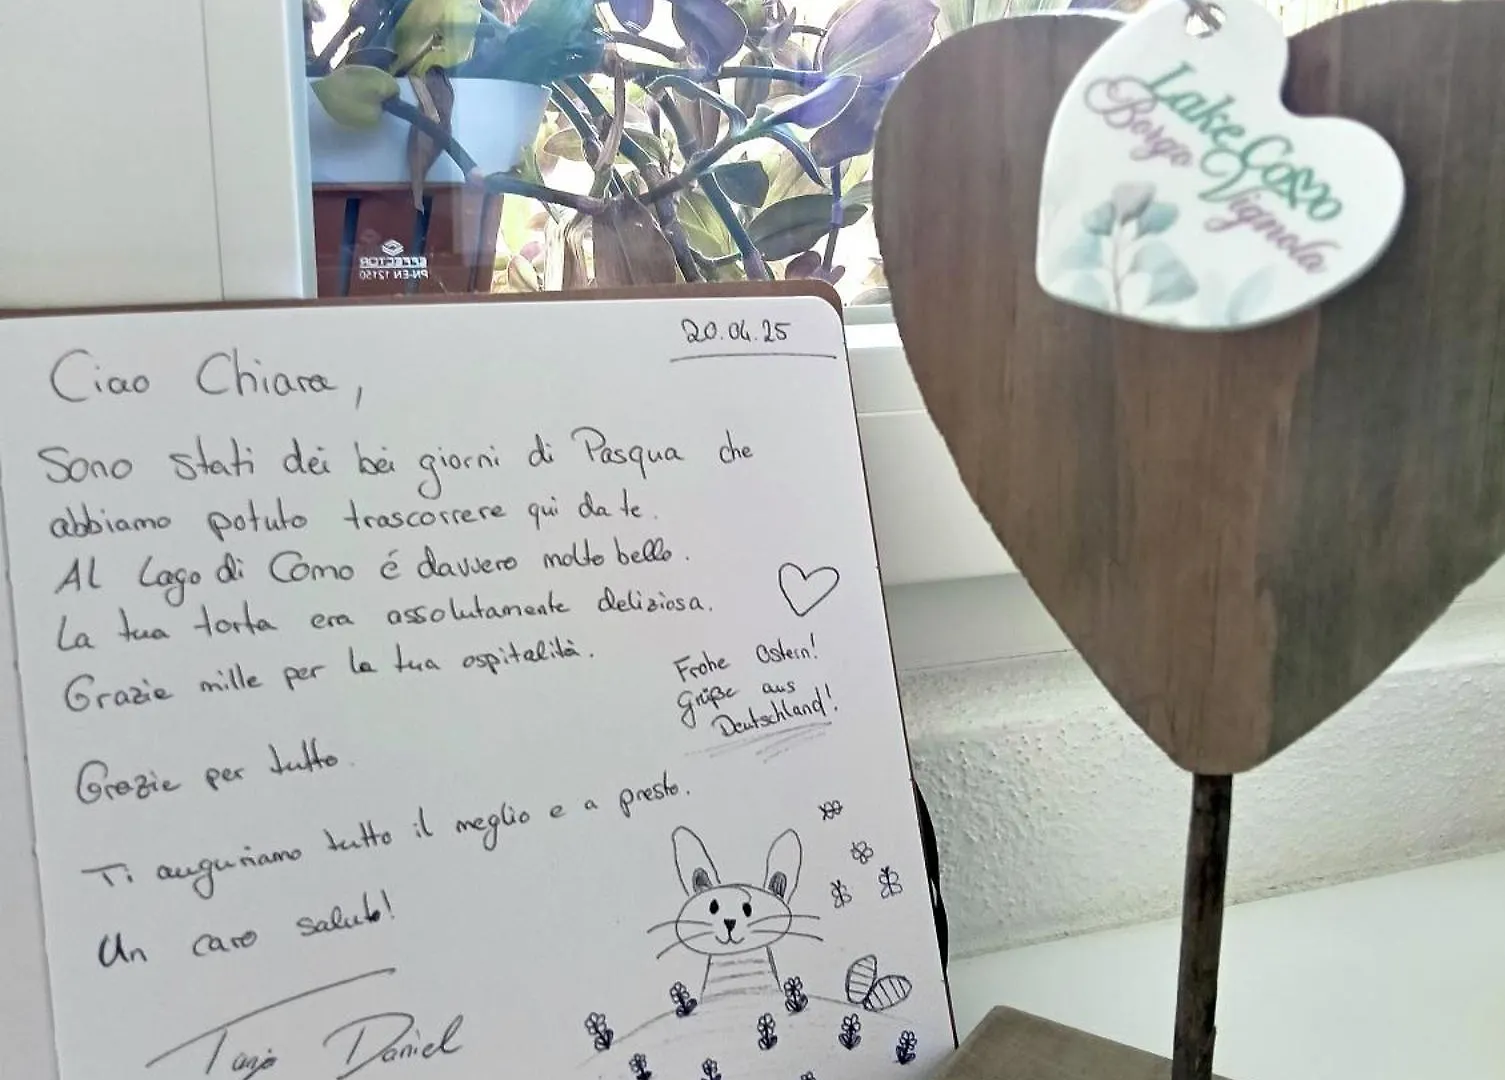 Lake Como
Borgo Vignola
EFFECTOR
PN-EN 12150
20.04.25
Ciao Chiara,
Sono stati dei bei giorni di Pasqua che
abbiamo potuto trascorrere qui da te.
Al Lago di Como é davvero molto bello.
La tua torta era assolutamente deliziosa.
Grazie mille per la tua ospitalità.
Frohe Ostern!
Grüße aus
Deutschland!
Grazie per tutto.
Ti auguriamo tutto il meglio e a presto.
Un caro saluto!
Tanja Daniel